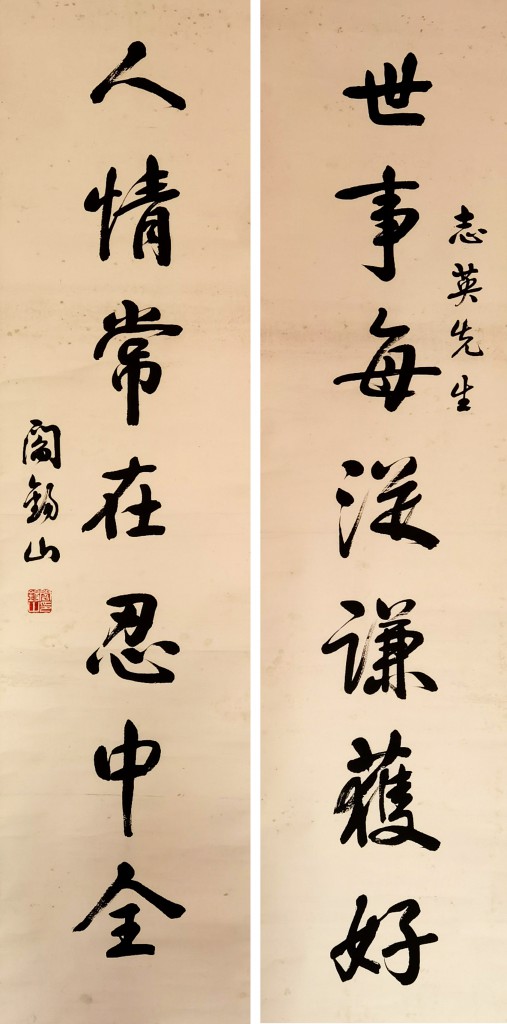 志英先生
世事每從謙獲好
人情常在忍中全
閻錫山